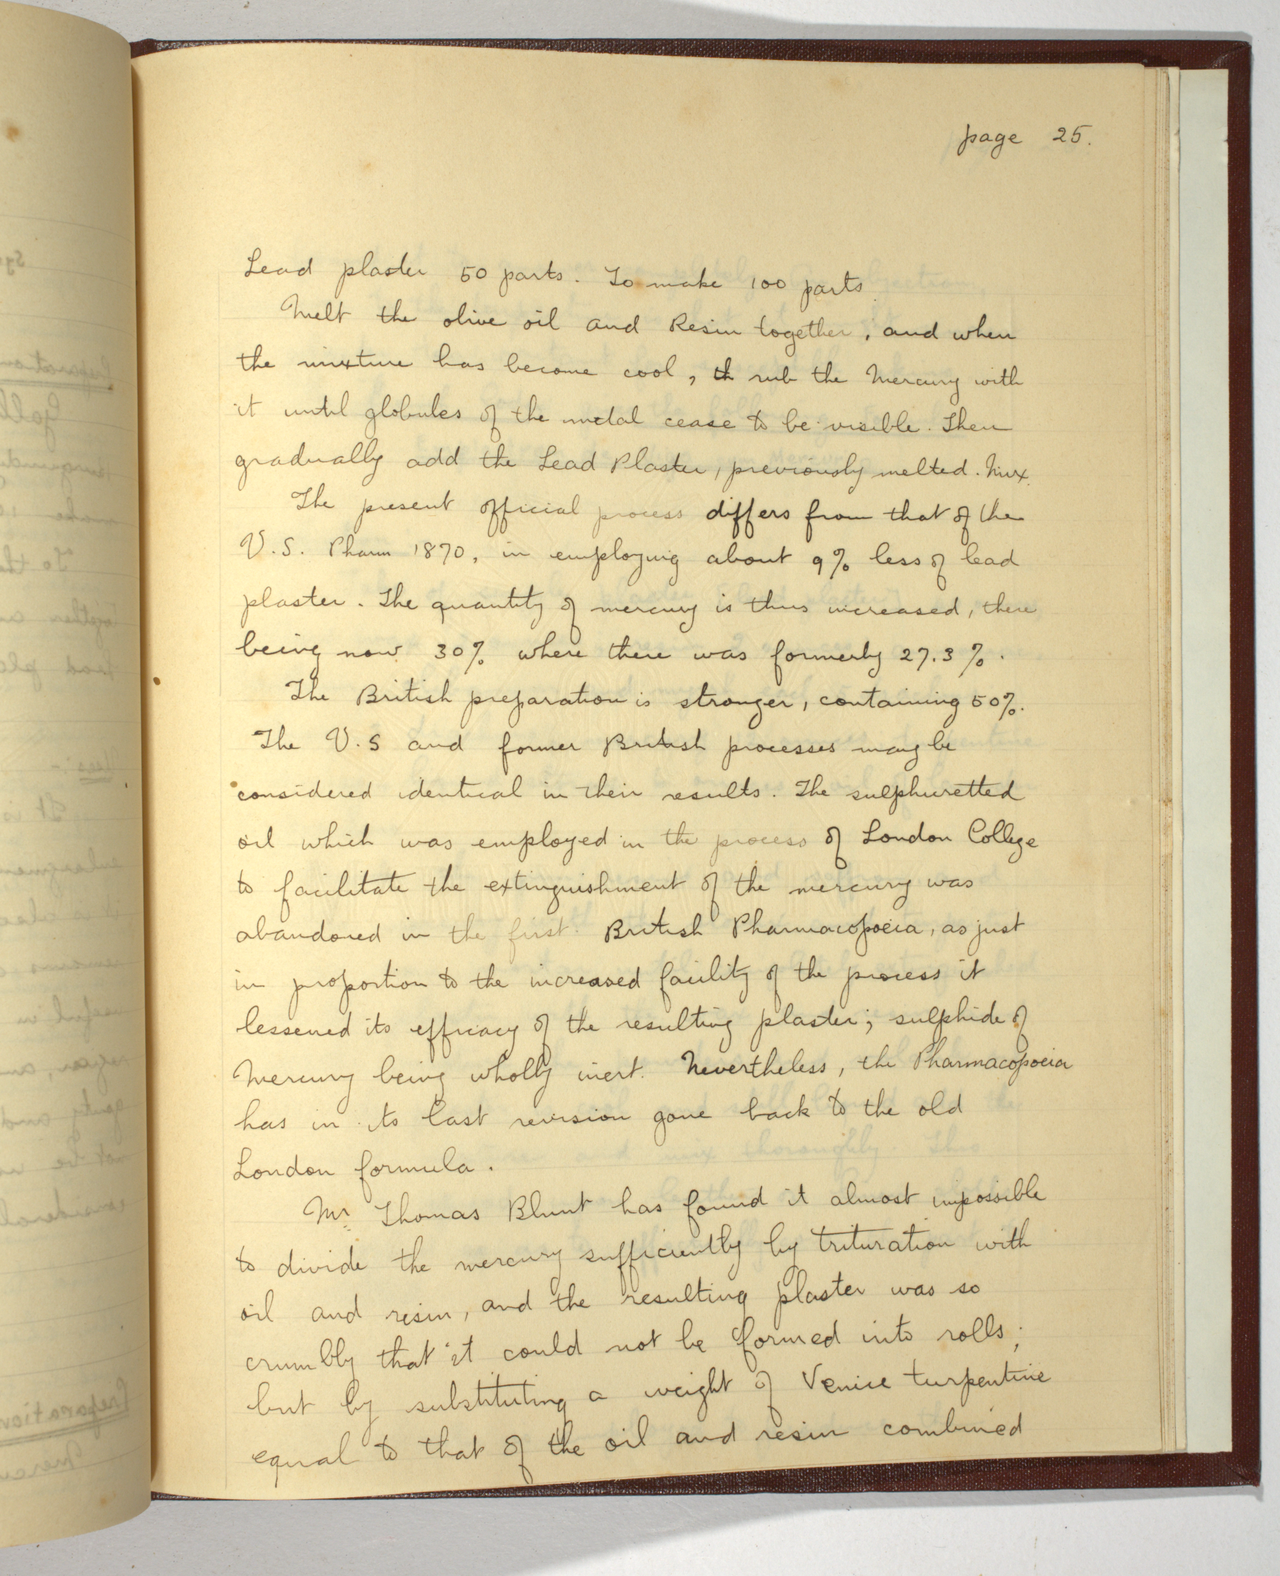 page 25.
Lead plaster 50 parts. To make 100 parts
Melt the olive oil and Resin together, and when
the mixture has become cool, th rub the Mercury with
it until globules of the metal cease to be visible. Then
gradually add the Lead Plaster, previously melted. Mix.
The present official process differs from that of the
U.S. Pharm 1870, in employing about 9% less of lead
plaster. The quantity of mercury is thus increased, there
being now 30% where there was formerly 27.3%.
The British preparation is stronger, containing 50%.
The U.S and former British processes may be
considered identical in their results. The sulphuretted
oil which was employed in the process of London College
to facilitate the extinguishment of the mercury was
abandoned in the first British Pharmacopoeia, as just
in proportion to the increased facility of the process it
lessened its efficacy of the resulting plaster; sulphide of
Mercury being wholly inert. Nevertheless, the Pharmacopoeia
has in its last revision gone back to the old
London formula.
Mr Thomas Blunt has found it almost impossible
to divide the mercury sufficiently by trituration with
oil and resin, and the resulting plaster was so
crumbly that it could not be formed into rolls;
but by substituting a weight of Venice turpentine
equal to that of the oil and resin combined